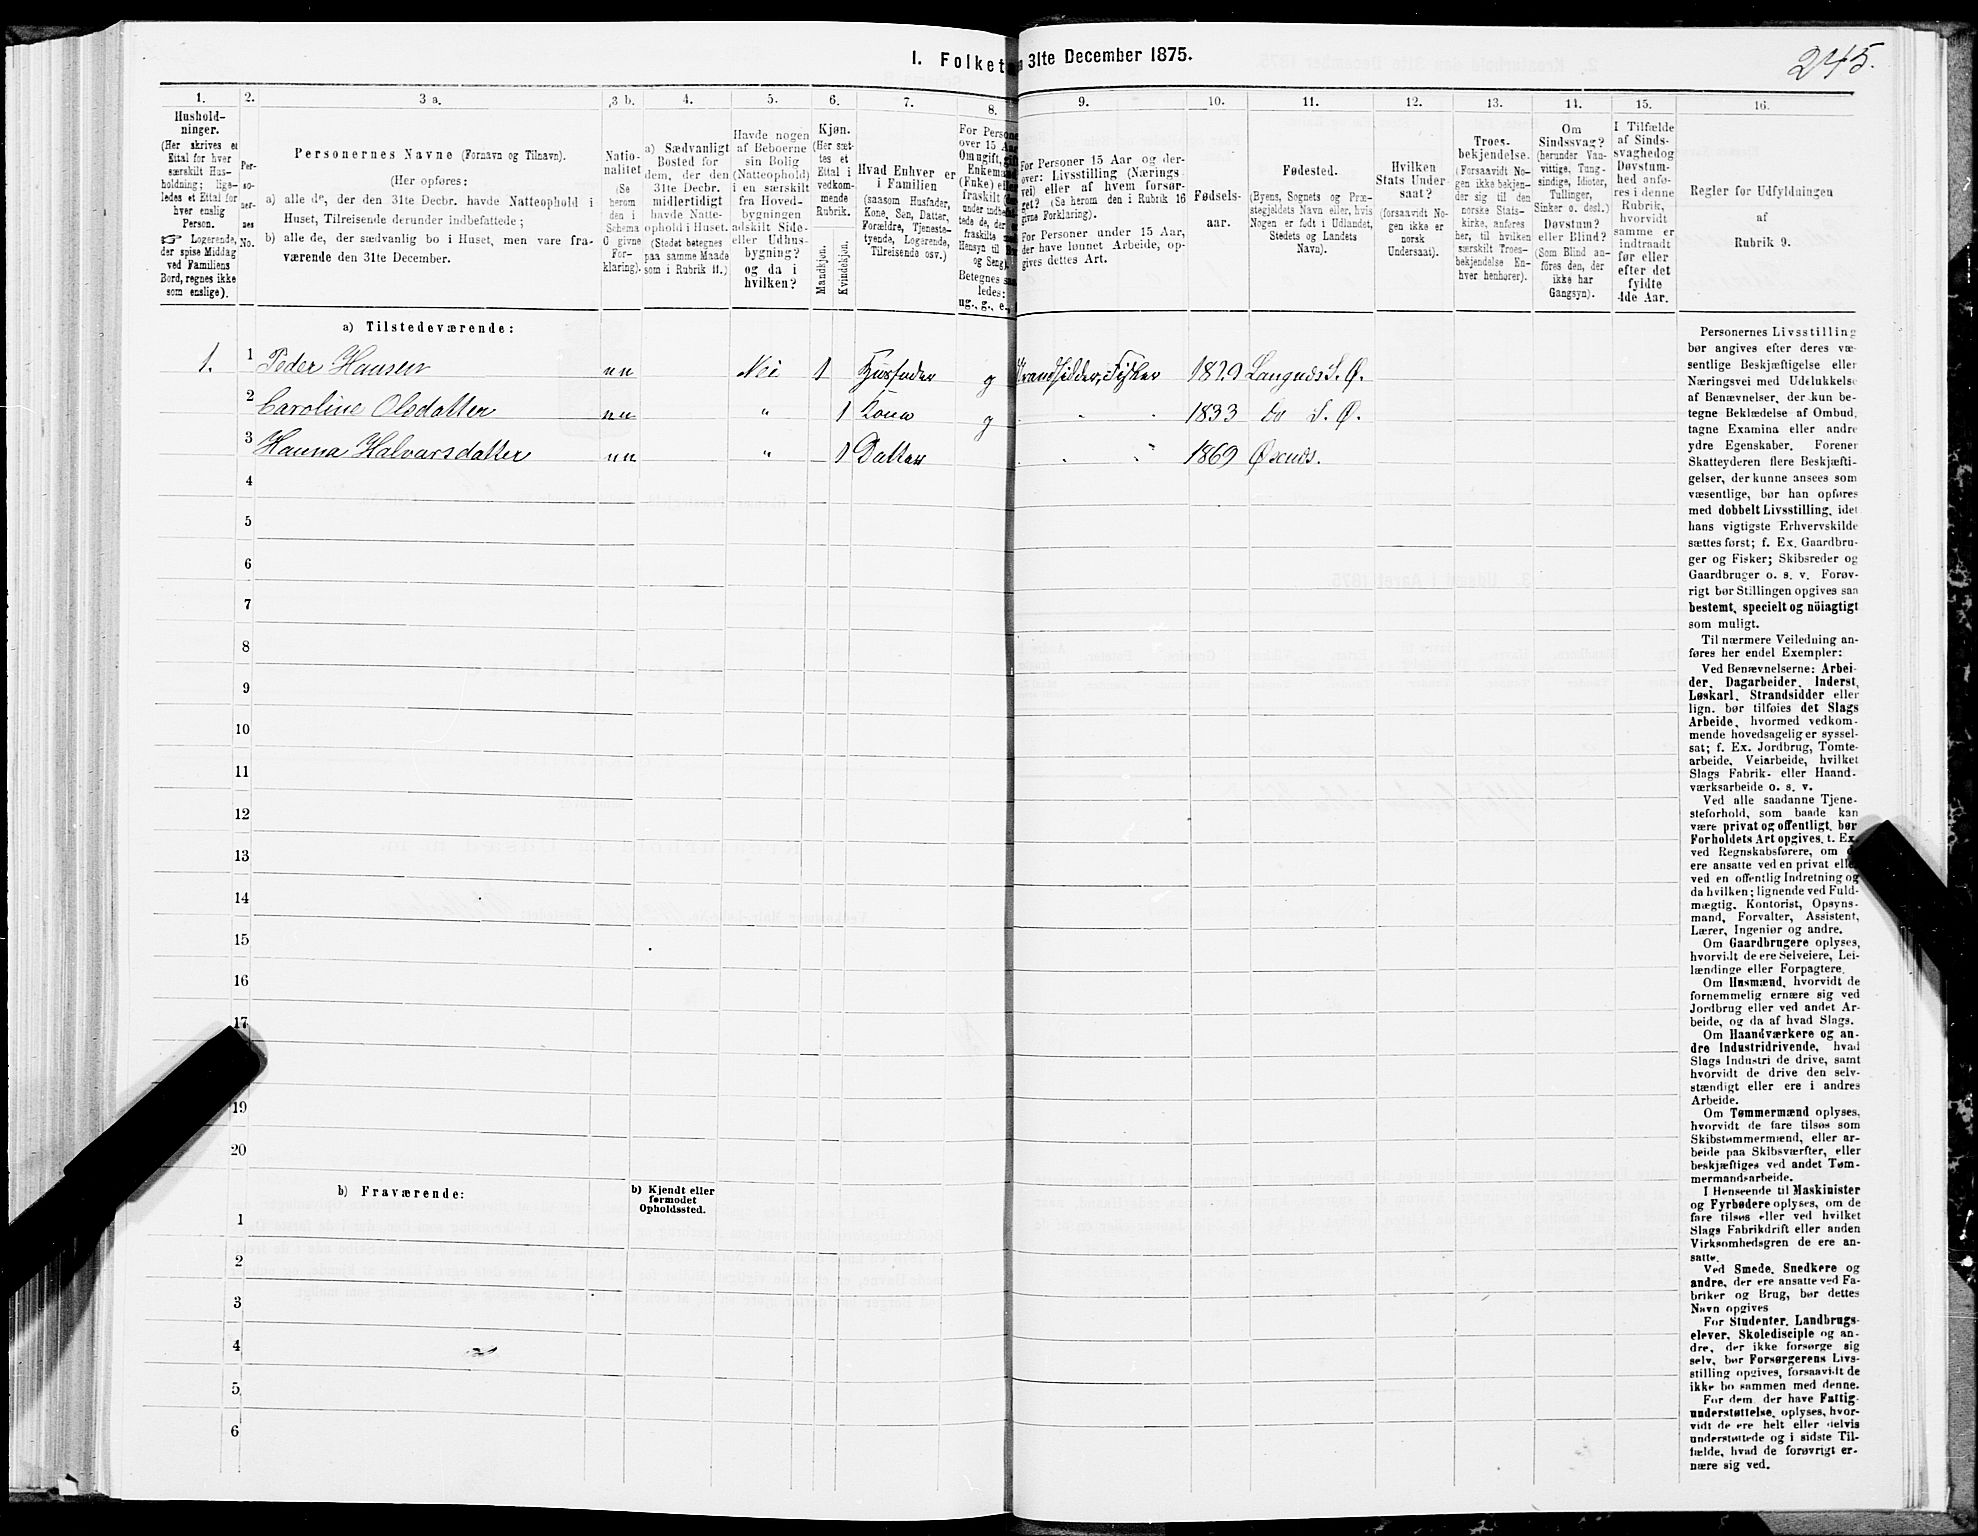 245.
I. Folket 31te December 1875.
1. 2. 3 a. 3 b. 4. 5. 6. 7. 8. 9. 10. 11. 12. 13. 14. 15. 16.
Hushold-
ninger.
(Her skrives et
Ettal for hver
særskilt Hus-
holdning; lige-
ledes et Ettal for
hver enslig
Person.
☞ Logerende,
der spise Middag
ved Familiens
Bord, regnes ikke
som enslige).
Per-
so-
ner-
nes
No.
Personernes Navne (Fornavn og Tilnavn).
(Her opføres:
a) alle de, der den 31te Decbr. havde Natteophold i
Huset, Tilreisende derunder indbefattede;
b) alle de, der sædvanlig bo i Huset, men vare fra-
værende den 31te December.
Natio-
nalitet
(Se
herom
den i
Schema
6 givne
For-
klaring).
a) Sædvanligt
Bosted for
dem, der den
31te Decbr.
midlertidigt
havde Natte-
ophold i Huset.
(Stedet betegnes
paa samme Maade
som i Rubrik 11.)
Havde nogen
af Beboerne
sin Bolig
(Natteophold)
i en særskilt
fra Hoved-
bygningen
adskilt Side-
eller Udhus-
bygning?
og da i
hvilken?
Kjøn.
(Her sæt-
tes et
Ettal i
vedkom-
mende
Rubrik.
Mandkjøn.
Kvindekjøn.
Hvad Enhver er
i Familien
(saasom Husfader,
Kone, Søn, Datter,
Forældre, Tjeneste-
tyende, Logerende,
Tilreisende osv.)
For Persone
over 15 Aar
Om ugift, gift
Enkemand
(Enke) eller
fraskilt
under indbefat-
tede de, der
fraskilte
Hensyn til
og Seng).
Betegnes saa-
ledes:
ug., g., e.,
For Personer 15 Aar og der-
over: Livsstilling (Nærings-
vei) eller af hvem forsør-
get? (Se herom den i Rubrik 16
givne Forklaring).
For Personer under 15 Aar,
der have lønnet Arbeide, op-
gives dettes Art.
Fødsels-
aar.
Fødested.
(Byens, Sognets og Præ-
stegjeldets Navn eller, hvis
Nogen er født i Udlandet,
Stedets og Landets
Navn).
Hvilken
Stats Under-
saat?
(forsaavidt No-
gen ikke er
norsk
Undersaat).
Troes-
bekjendelse.
(Forsaavidt No-
gen ikke bekjen-
der sig til den
norske Stats-
kirke, anføres
her, til hvilken
særskilt Troes-
bekjendelse En-
hver henhører).
Om
Sindssvag?
(herunder Van-
vittige, Tung-
sindige, Idioter,
Tullinger,
Sinker o. desl.)
Døvstum?
eller Blind?
(Som Blind an-
føres den, der
ikke har
Gangsyn).
I Tilfælde
af Sinds-
svaghed og
Døvstum-
hed anfø-
res i denne
Rubrik,
hvorvidt
samme er
indtraadt
før eller
efter det
fyldte
4de Aar.
Regler for Udfyldningen
af
Rubrik 9.
a) Tilstedeværende:
1. 1 Peder Hansen nn Nei 1 Husfader g Strandsidder, Fisker 1820 Langnæs S. Ø.
2 Caroline Olsdatter nn " 1 Kone g " " 1833 do S. Ø.
3 Hanna Halvarsdatter nn " 1 Datter " " 1869 Øxnæs.
4
5
6
7
8
9
10
11
12
13
14
15
16
17
19
20
b) Fraværende:
b) Kjendt eller
formodet
Opholdssted.
1
2
3
4
5
6
Personernes Livsstilling
bør angives efter deres væ-
sentlige Beskjæftigelse eller
Næringsvei med Udelukkelse
af Benævnelser, der kun be-
tegne Beklædelse af Ombud,
tagne Examina eller andre
ydre Egenskaber. Forener
Skatteyderen flere Beskjæfti-
gelser, der kunne ansees som
væsentlige, bør han opføres
med dobbelt Livsstilling, idet
hans vigtigste Erhvervskilde
sættes først; f. Ex. Gaardbru-
ger og Fisker; Skibsreder og
Gaardbruger o. s. v. Forøv-
rigt bør Stillingen opgives saa
bestemt, specielt og nöiagtigt
som muligt.
Til nærmere Veiledning an-
føres her endel Exempler:
Ved Benævnelserne: Arbei-
der, Dagarbeider, Inderst,
Løskarl, Strandsidder eller
lign. bør tilføies det Slags
Arbeide, hvormed vedkom-
mende hovedsagelig er syssel-
sat; f. Ex. Jordbrug, Tomte-
arbeide, Veiarbeide, hvilket
Slags Fabrik- eller Haand-
værksarbeide o. s. v.
Ved alle saadanne Tjene-
steforhold, som baade kan
være privat og offentligt, bør
Forholdets Art opgives, t. Ex.
ved Regnskabsførere, om
ere ansatte ved en privat eller
ved en offentlig Indretning og
da hvilken; lignende ved Fuld-
mægtig, Kontorist, Opsyns-
mand, Forvalter, Assistent,
Lærer, Ingeniør og andre.
Om Gaardbrugere oplyses,
hvorvidt de ere Selveiere, Lei-
lændinge eller Forpagtere.
Om Husmænd, hvorvidt de
fornemmelig ernære sig ved
Jordbrug eller ved andet Ar-
beide, og da af hvad Slags.
Om Haandværkere og an-
dre Industridrivende, hvad
Slags Industri de drive, samt
hvorvidt de drive den selv-
stændigt eller ere i andres
Arbeide.
Om Tømmermænd oplyses,
hvorvidt de fare tilsøs som
Skibstømmermænd, eller ar-
beide paa Skibsværfter, eller
beskjæftiges ved andet Tøm-
mermandsarbeide.
I Henseende til Maskinister
og Fyrbødere oplyses, om de
fare tilsøs eller ved hvilket
Slags Fabrikdrift eller anden
Virksomhedsgren de ere an-
satte.
Ved Smede, Snedkere og
andre, der ere ansatte ved Fa-
briker og Brug, bør dettes
Navn opgives
For Studenter, Landbrugs-
elever, Skoledisciple og an-
dre, der ikke forsørge sig
selv, bør Forsørgerens Livs-
stilling opgives, forsaavidt de
ikke bo sammen med denne.
For dem, der have Fattig-
understøttelse, oplyses, hvor-
vidt de ere helt eller delvis
understøttede og i sidste Til-
fælde, hvad de forøvrigt er-
nære sig ved.